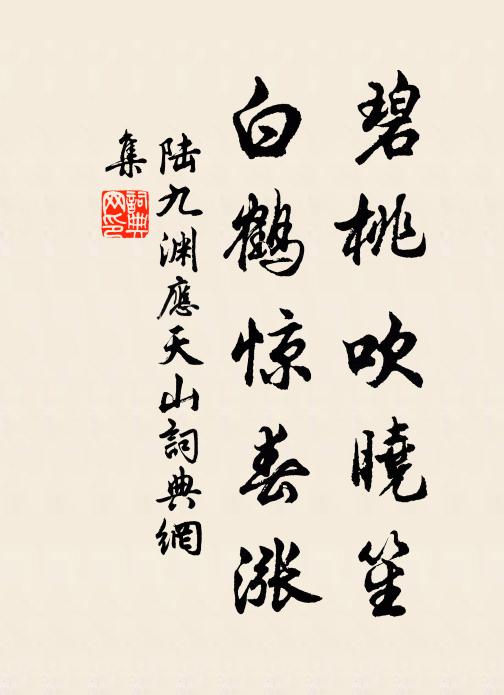 碧桃吹曉笙
白鶴惊春漲
陸九渊應天山詞典網
集
詞典网印